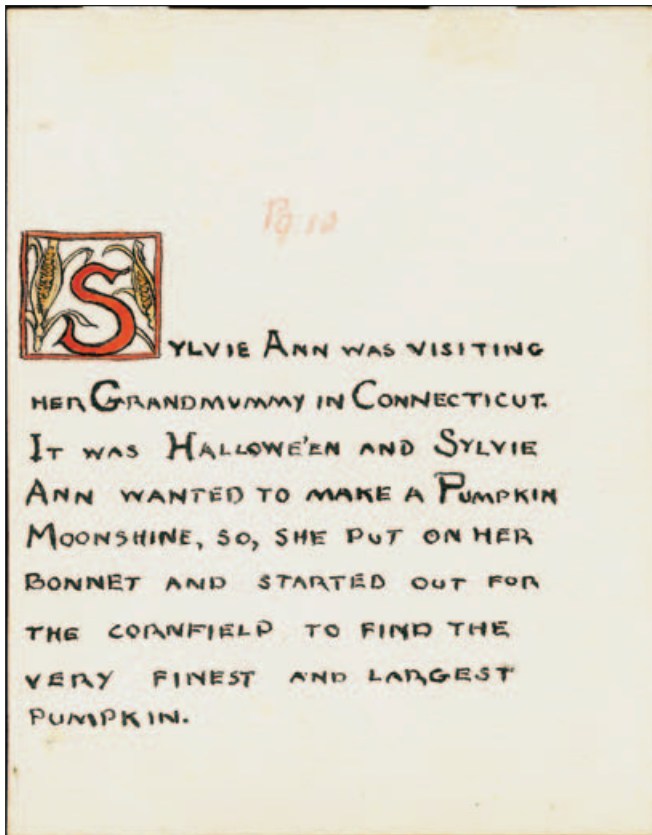 Pg. 10
SYLVIE ANN WAS VISITING
HER GRANDMUMMY IN CONNECTICUT.
IT WAS HALLOWE'EN AND SYLVIE
ANN WANTED TO MAKE A PUMPKIN
MOONSHINE, SO, SHE PUT ON HER
BONNET AND STARTED OUT FOR
THE CORNFIELD TO FIND THE
VERY FINEST AND LARGEST
PUMPKIN.